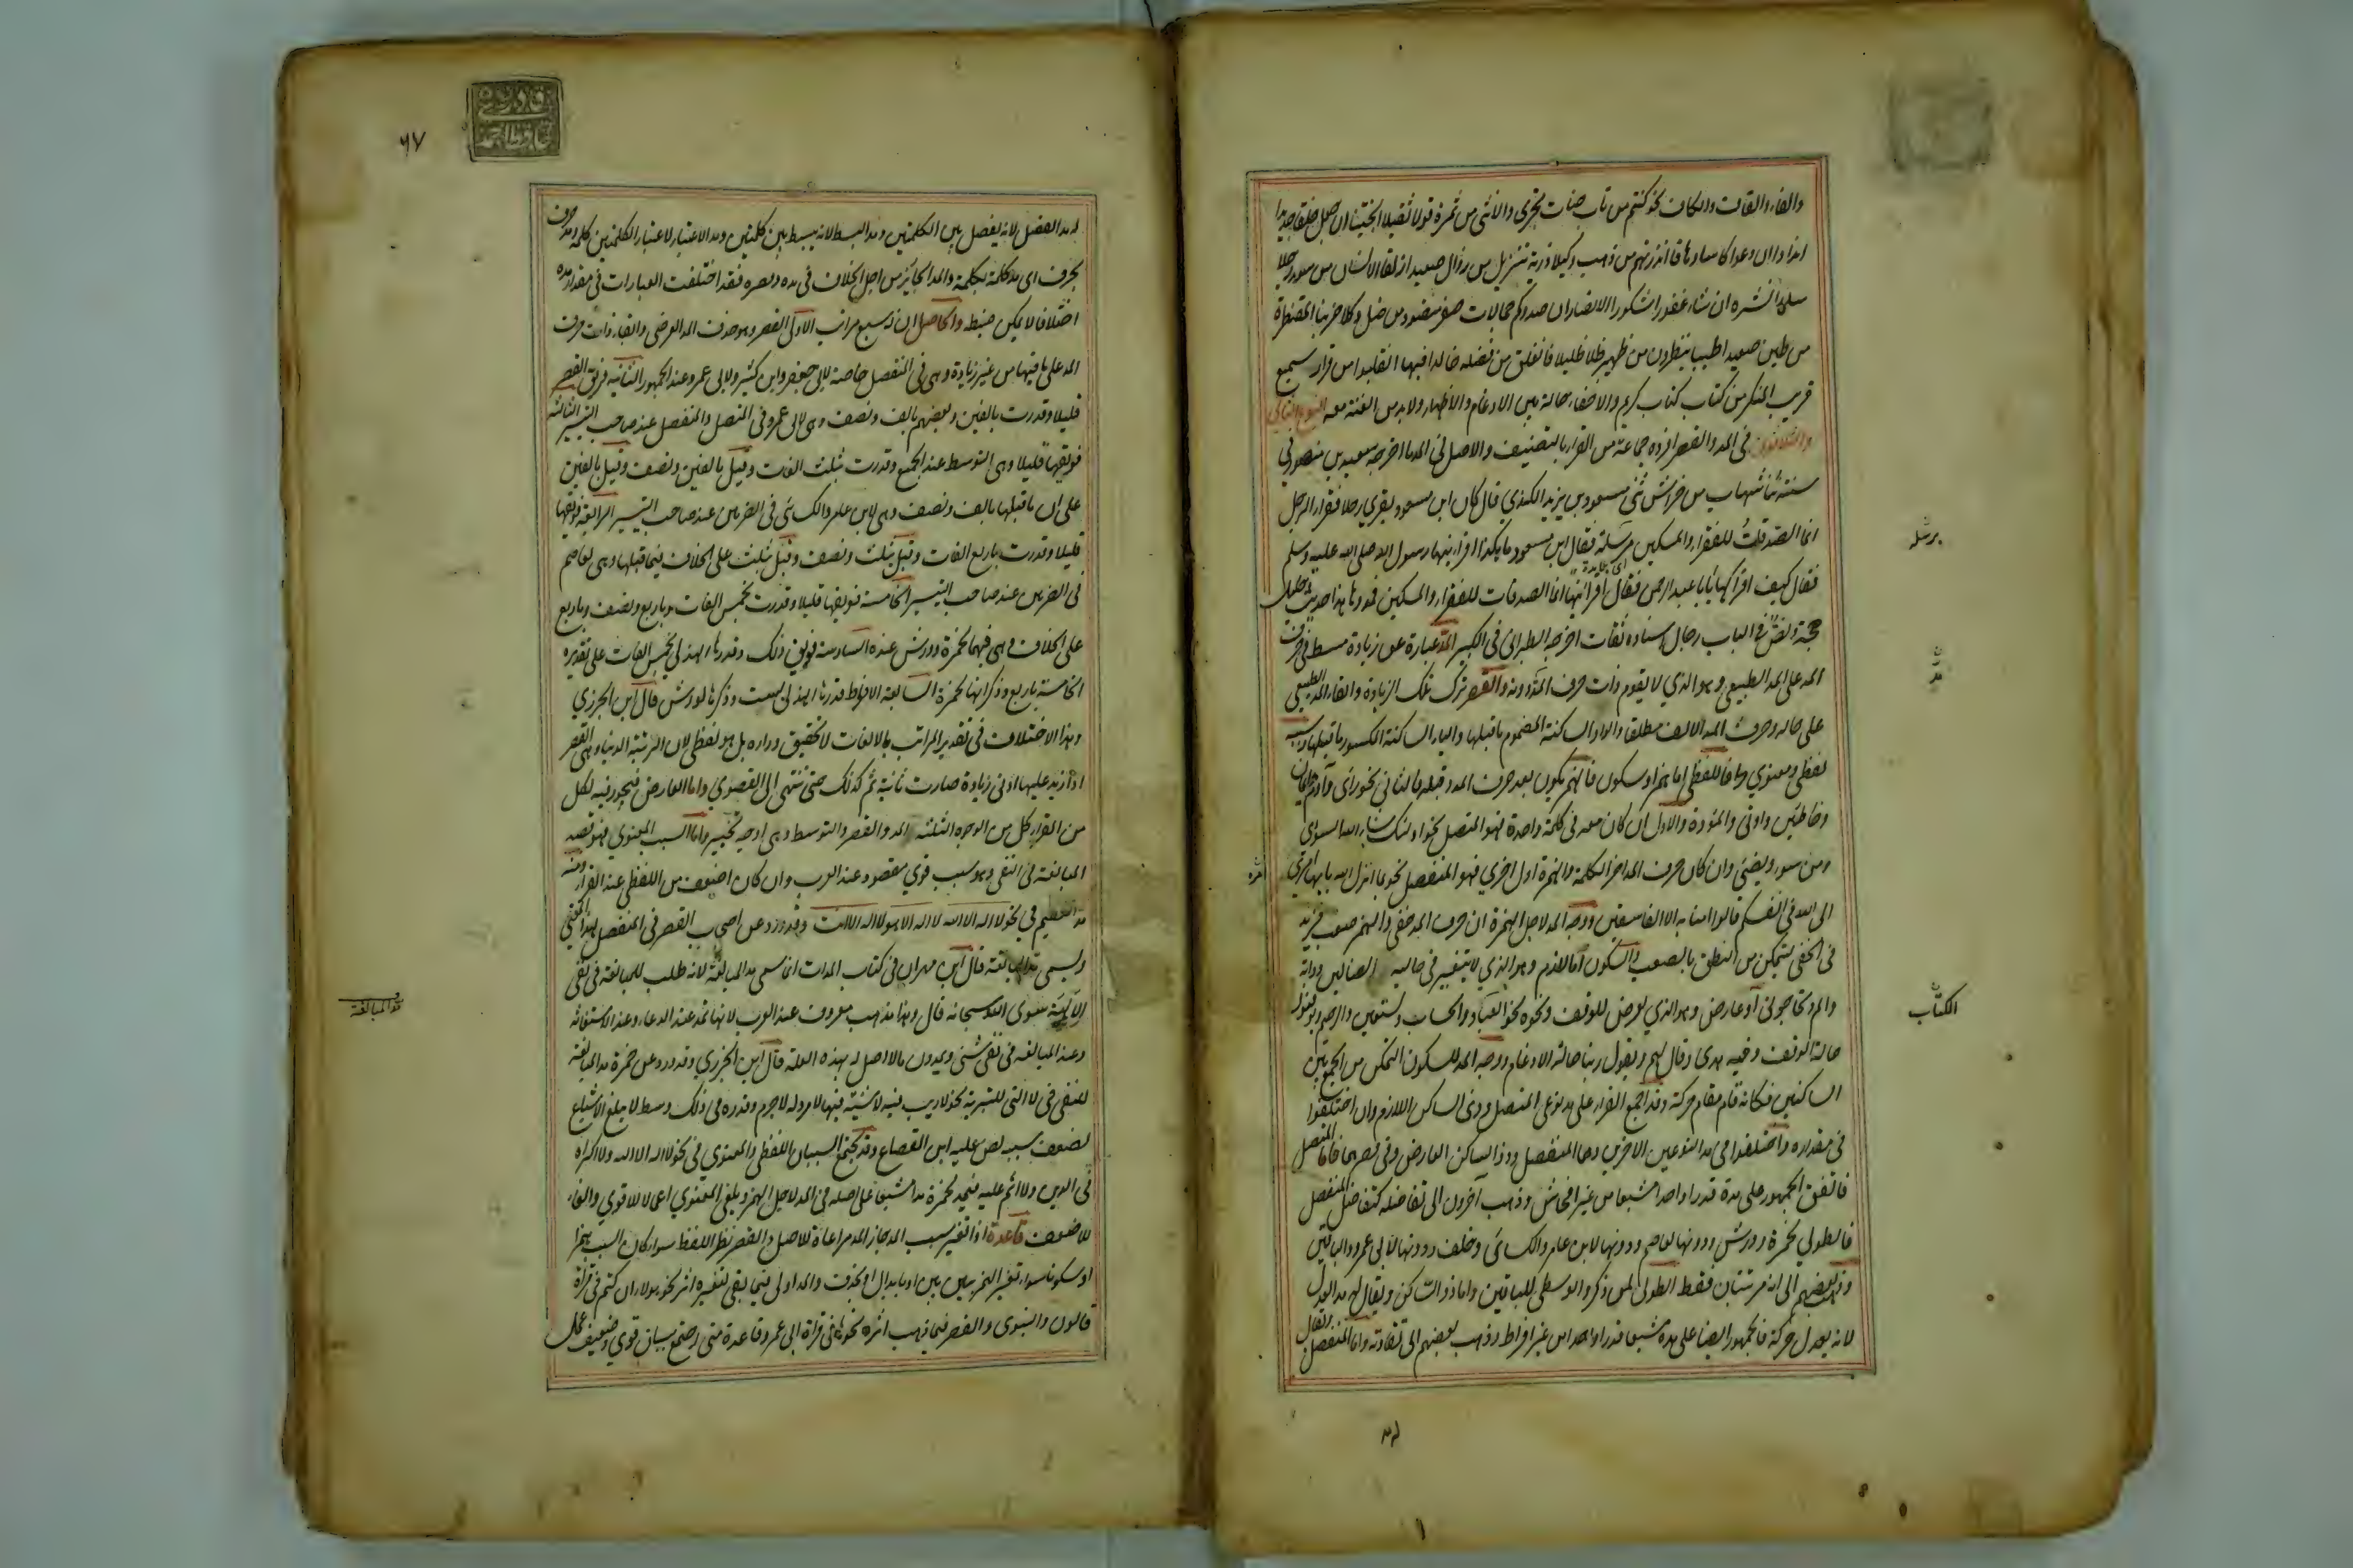 والفاء والقاف والكاف نحو كنتم من تاب جنات تجري والانثى من ثمرة قولا ثقيلا انجيتنا ان جعل خلقا جديدا
اندادا ان دعوا كاسا دهاقا انذرتهم من ذهب وكيلا ذرية تنزيل من زوال صعيدا زلقا الانسان من سوء رجلا
سلما انشره ان شاء غفور شكور الانصار ان صدوكم جمالات صفر منضود من ضل وكلا ضربنا المقنطرة
من طين صعيدا طيبا ينظرون من ظهير ظلا ظليلا فانفلق من فضله خالدا فيها انقلبوا من قرار سميع
قريب المنكر من كتاب كتاب كريم والاخفاء حالة بين الادغام والاظهار ولا بد من الغنة معه النوع الثاني
والثلاثون في المد والقصر افرده جماعة من القراء بالتصنيف والاصل في المد ما اخرجه سعيد بن منصور في
سننه ثنا شهاب بن خراش ثني مسعود بن يزيد الكندي قال كان ابن مسعود يقري رجلا فقرا الرجل
انما الصدقات للفقراء والمسكين مرسلة فقال ابن مسعود ما هكذا اقرانيها رسول الله صلى الله عليه وسلم
فقال كيف اقراكها يا ابا عبد الرحمن فقال اقرانيها انما الصدقات للفقراء والمسكين فمدوها هذا حديث جليل
حجة ونص في الباب رجال اسناده ثقات اخرجه الطبراني في الكبير المد عبارة عن زيادة مط في حرف
المد على المد الطبيعي وهو الذي لا يقوم ذات حرف المد دونه والقصر ترك تلك الزيادة وابقاء المد الطبيعي
على حاله وحرف المد الالف مطلقا والواو الساكنة المضموم ما قبلها والياء الساكنة المكسور ما قبلها وسببه
لفظي ومعنوي فاللفظي اما همز او سكون فالهمز يكون بعد حرف المد وقبله فالثاني نحو رأى وآدم وايمان
وخاطئين واوتي والموؤدة والاول ان كان معه في كلمة واحدة فهو المتصل نحو اولئك شاء الله السوأى
ومن سوء ويضيء وان كان حرف المد اخر الكلمة والهمزة اول اخرى فهو المنفصل نحو بما انزل الله يا ايها امري
الى الله في انفسكم قالوا امنا به الا الفاسقين ووجه المد لاجل الهمزة ان حرف المد خفي والهمز صعب فزيد
في الخفي ليتمكن من النطق بالصعب والسكون اما لازم وهو الذي لا يتغير في حاليه الضالين ودابة
والم وتحاجوني او عارض وهو الذي يعرض للوقف ونحوه نحو العباد والحساب ونستعين والرحيم ويوقنون
حالة الوقف وفيه هدى وقال لهم ويقول ربنا حالة الادغام ووجه المد للسكون التمكن من الجمع بين
الساكنين فكانه قام مقام حركة وقد اجمع القراء على مد نوعي المتصل وذي الساكن اللازم وان اختلفوا
في مقداره واختلفوا في مد النوعين الاخرين وهما المنفصل وذو الساكن العارض وفي قصرهما فاما المتصل
فاتفق الجمهور على مده قدرا واحدا مشبعا من غير افحاش وذهب آخرون الى تفاضله كتفاضل المنفصل
فالطولى لحمزة وورش ودونها لعاصم ودونها لابن عامر والكسائي وخلف ودونها لابي عمرو والباقين
وذهب بعضهم الى انه مرتبتان فقط الطولى لمن ذكر والوسطى للباقين واما ذو الساكن ويقال له مد العدل
لانه يعدل حركة فالجمهور ايضا على مده مشبعا قدرا واحدا من غير افراط وذهب بعضهم الى تفاوته واما المنفصل ويقال
له مد
برسله
مد
الكتاب
٦٧
له مد الفصل لانه يفصل بين الكلمتين ومد البسط لانه يبسط بين كلمتين ومد الاعتبار لاعتبار الكلمتين من كلمة ومد حرف
بحرف اي مد كلمة بكلمة والمد الجائز من اجل الخلاف في مده وقصره فقد اختلفت العبارات في مقدار مده
اختلافا لا يمكن ضبطه والحاصل ان له سبع مراتب الاولى القصر وهو حذف المد العرضي وابقاء ذات حرف
المد على ما فيها من غير زيادة وهي في المنفصل خاصة لابي جعفر وابن كثير ولابي عمرو عند الجمهور الثانية فويق القصر
قليلا وقدرت بالفين وبعضهم بالف ونصف وهي لابي عمرو في المتصل والمنفصل عند صاحب التيسير الثالثة
فويقها قليلا وهي التوسط عند الجميع وقدرت بثلث الفات وقيل بالفين ونصف وقيل بالفين
على ان ما قبلها بالف ونصف وهي لابن عامر والكسائي في الضربين عند صاحب التيسير الرابعة فويقها
قليلا وقدرت باربع الفات وقيل بثلث ونصف وقيل بثلث على الخلاف فيما قبلها وهي لعاصم
في الضربين عند صاحب التيسير الخامسة فويقها قليلا وقدرت بخمس الفات وباربع ونصف وباربع
على الخلاف وهي فيهما لحمزة وورش عنده السادسة فويق ذلك وقدرها الهذلي بخمس الفات على تقديره
الخامسة باربع وذكر انها لحمزة السابعة الافراط قدرها الهذلي بست وذكرها لورش قال ابن الجزري
وهذا الاختلاف في تقدير المراتب بالالفات لا تحقيق وراءه بل هو لفظي لان المرتبة الدنيا وهي القصر
اذا زيد عليها ادنى زيادة صارت ثانية ثم كذلك حتى تنتهي الى القصوى واما العارض فيجوز فيه لكل
من القراء كل من الوجوه الثلثة المد والقصر والتوسط وهي اوجه تخيير واما السبب المعنوي فهو قصد
المبالغة في النفي وهو سبب قوي مقصود عند العرب وان كان اضعف من اللفظي عند القراء ومنه
مد التعظيم في نحو لا اله الا الله لا اله الا هو لا اله الا انت وقد ورد عن اصحاب القصر في المنفصل لهذا المعنى
ويسمى مد المبالغة قال ابن مهران في كتاب المدات انما سمي مد المبالغة لانه طلب للمبالغة في نفي
الالهية سوى الله سبحانه قال وهذا مذهب معروف عند العرب لانها تمد عند الدعاء وعند الاستغاثة
وعند المبالغة في نفي شيء ويمدون ما لا اصل له بهذه العلة قال ابن الجزري وقد ورد عن حمزة مد المبالغة
للنفي في لا التي للتبرية نحو لا ريب فيه لا شية فيها لا مرد له لا جرم وقدره في ذلك وسط لا يبلغ الاشباع
لضعف سببه نص عليه ابن القصاع وقد يجتمع السببان اللفظي والمعنوي في نحو لا اله الا الله ولا اكراه
في الدين ولا اثم عليه فيمد لحمزة مدا مشبعا على اصله في المد لاجل الهمز ويلغى المعنوي اعمالا للاقوى والغاء
للاضعف قاعدة اذا تغير سبب المد جاز المد مراعاة للاصل والقصر نظرا للفظ سواء كان السبب همزا
او سكونا سواء تغير الهمز بين بين او بابدال او بحذف والمد اولى فيما بقي لتغيره اثر نحو هؤلاء ان كنتم في قراة
قالون والبزي والقصر فيما ذهب اثره نحوها في قراة ابي عمرو قاعدة متى اجتمع سببان قوي وضعيف عمل
مد المبالغة